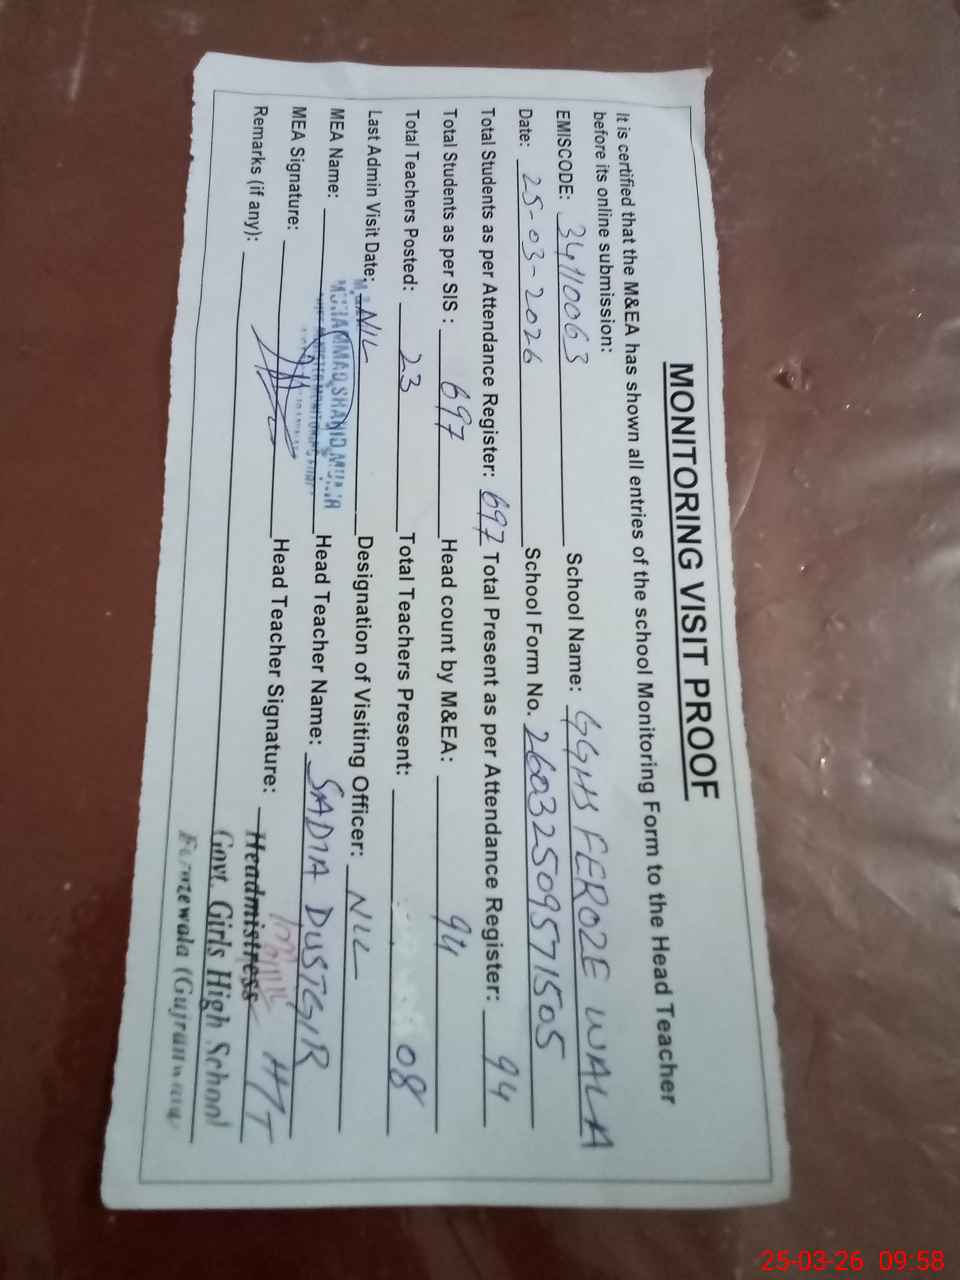 MONITORING VISIT PROOF
It is certified that the M&EA has shown all entries of the school Monitoring Form to the Head Teacher
before its online submission:
EMISCODE: 34110063 School Name: GGHS FEROZE WALA
Date: 25-03-2026 School Form No. 26032509571505
Total Students as per Attendance Register: 697 Total Present as per Attendance Register: 94
Total Students as per SIS : 697 Head count by M&EA: 94
Total Teachers Posted: 23 Total Teachers Present: 08
Last Admin Visit Date: NIL Designation of Visiting Officer: NIL
MEA Name: MUHAMMAD SHAHID Head Teacher Name: SADIA DUSTGIR
MEA Signature: Head Teacher Signature: H/T
Remarks (if any):
Headmistress
Govt. Girls High School
Ferozewala (Gujranwala
25-03-26 09:58